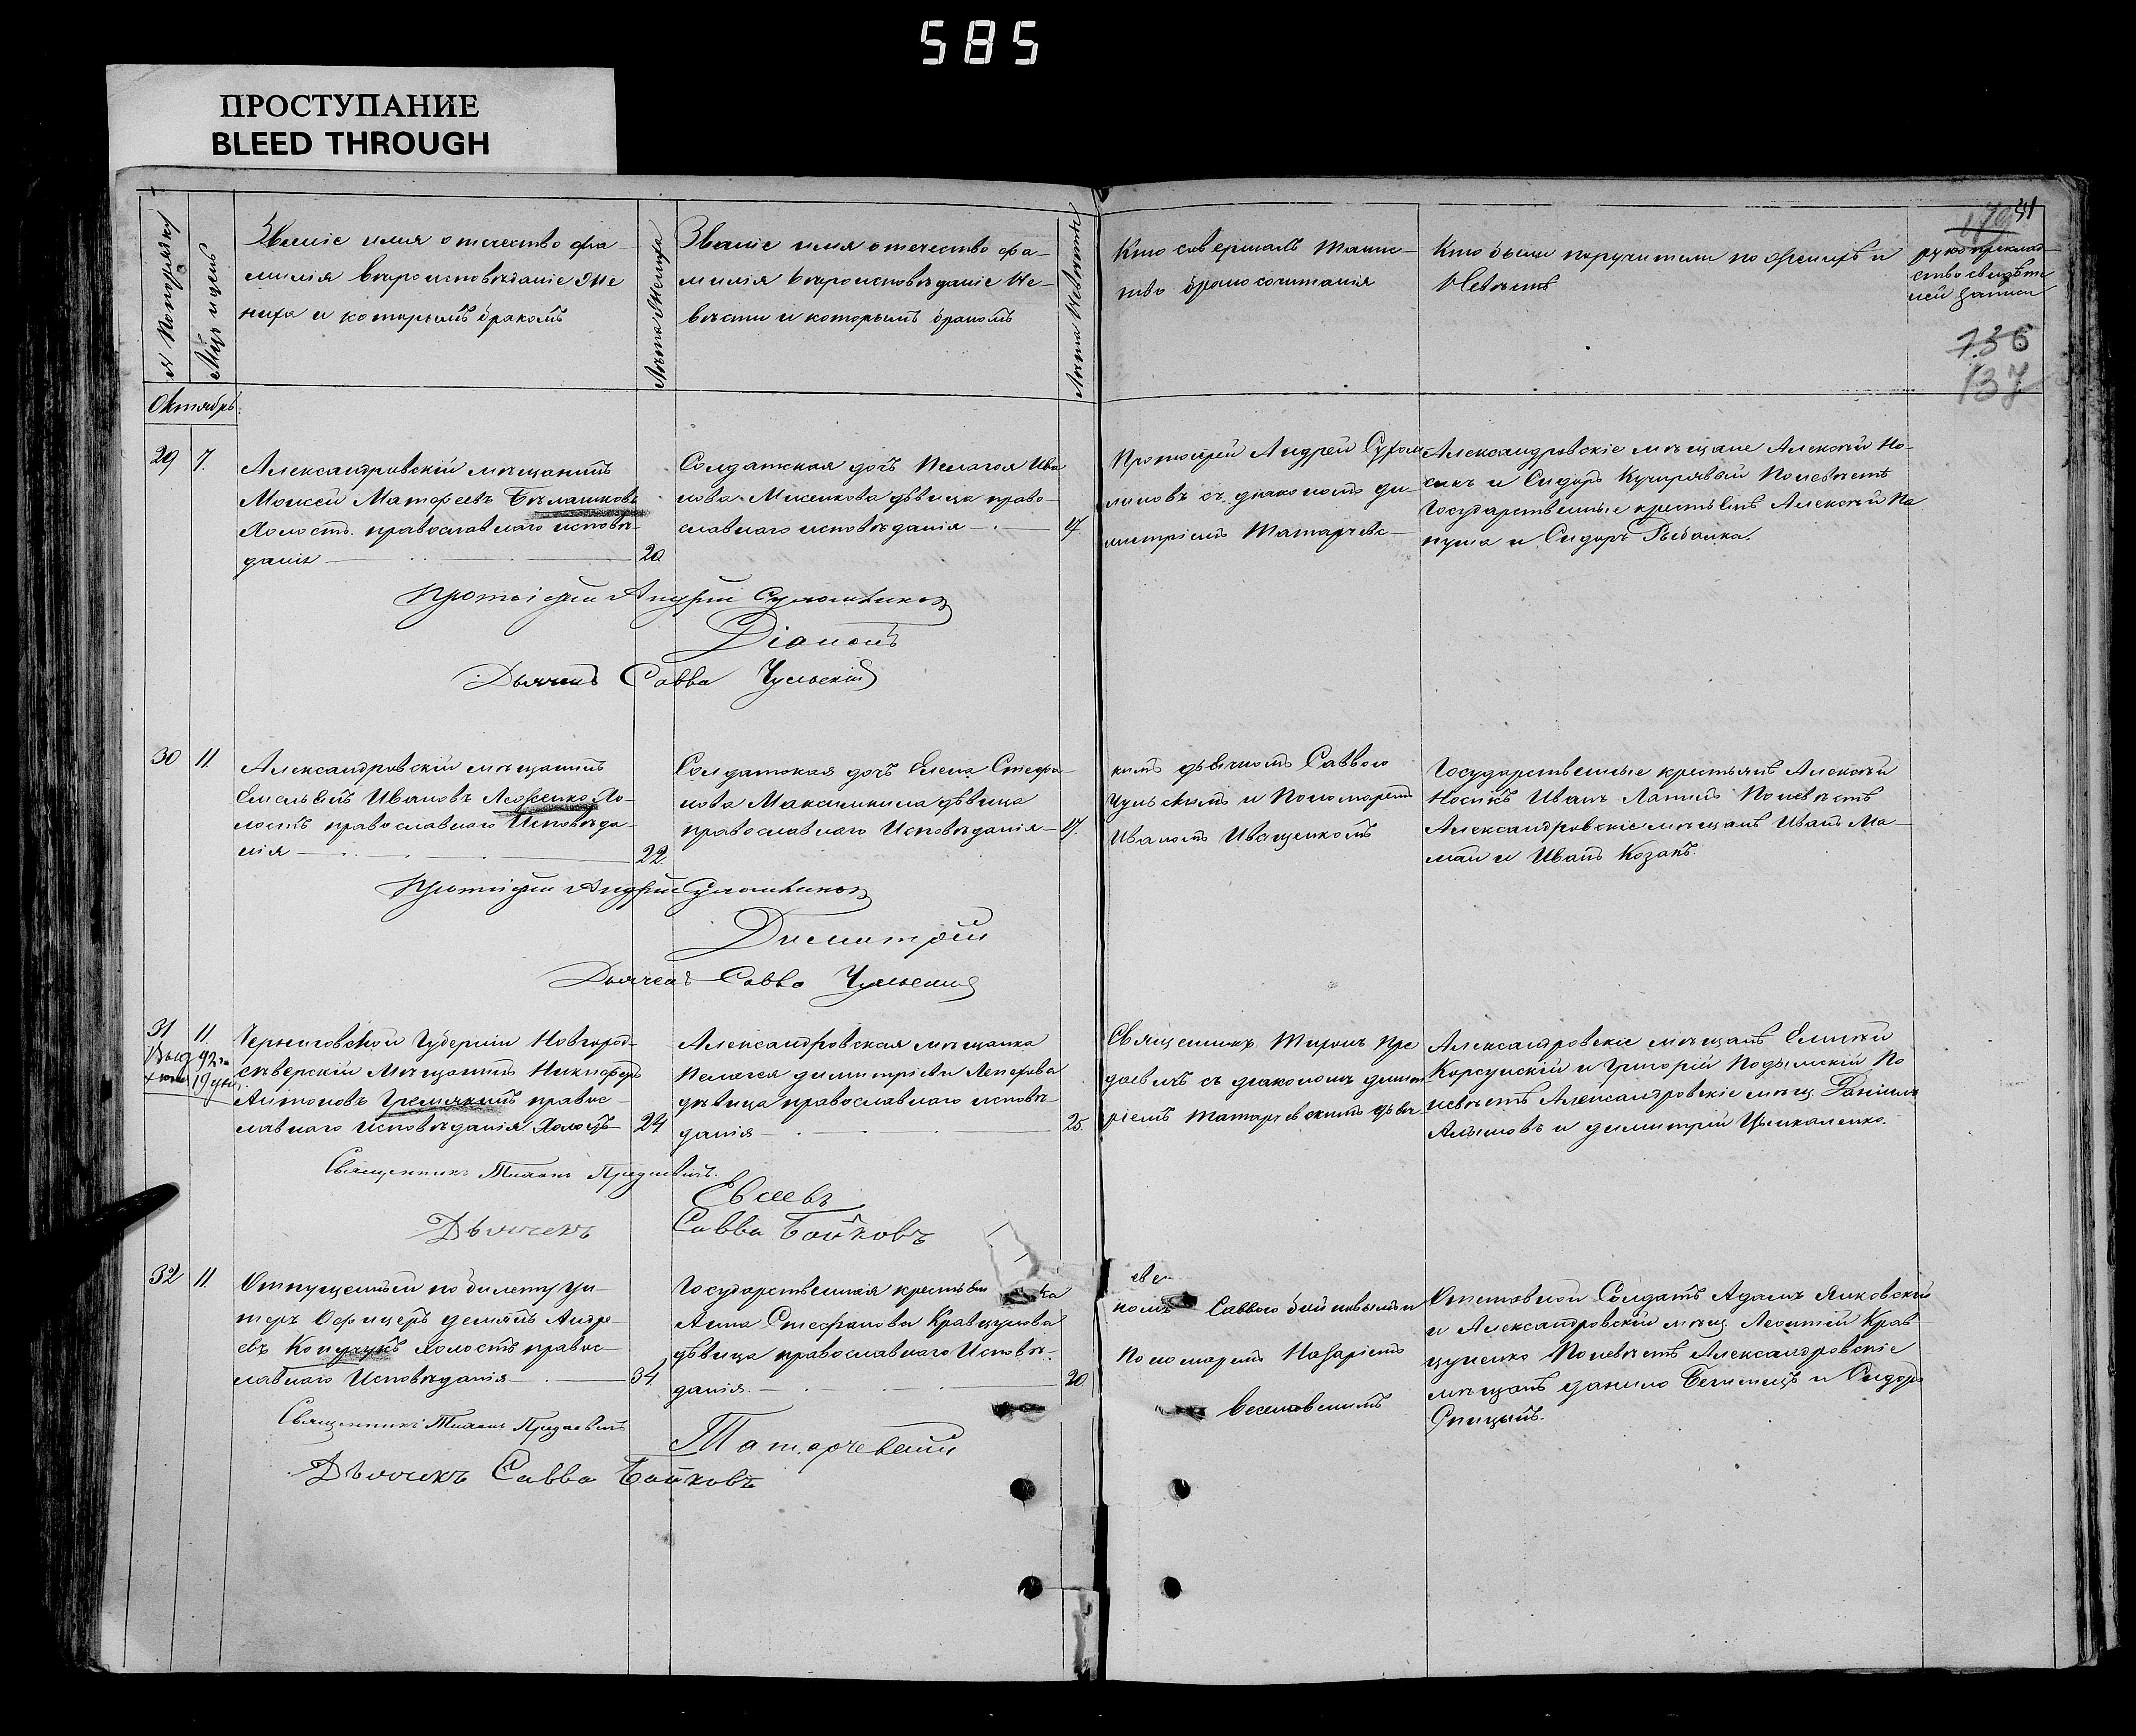 585
ПРОСТУПАНИЕ
BLEED THROUGH
41
Званіе имя отечество фа-
милія вѣроисповѣданіе Же
ниха и которымъ бракомъ
Лѣта Жениха
Званіе имя отечество фа-
милія вѣроисповѣданіе Не-
вѣсты и которымъ бракомъ
Лѣта Невѣсты
Кто совершалъ Таинс-
тво бракосочитанія
Кто были поручители по женихѣ и
Невѣстѣ
рукоприклад-
ство свидѣте
лей записи
736
137
Октябрь.
29 7.
Александровскій мѣщанинъ
Моисей Матѳеевъ Бѣлашковъ
Холостъ православнаго исповѣ-
данія 20
Солдатская дочь Пелагея Ива
нова Мисникова дѣвица право-
славнаго исповѣданія 17.
Протоіерей Андрей Сухом
линовъ съ діакономъ Ди-
митріемъ Татарчевс-
Александровскіе мѣщане Алексѣй Но-
сикъ и Сидоръ Кучерявый По невѣстѣ
Государственные крестьяне Алексѣй Па
пуша и Сидоръ Рыбалка.
Протоіерей Андрей Сухомлиновъ
Діаконъ
Дьячекъ Савва Чульскій
30 11.
Александровскій мѣщанинъ
Емельянъ Ивановъ Ложенко Хо-
лостъ православнаго Исповѣда-
нія 22.
Солдатская дочь Елена Стефа-
нова Максимкина дѣвица
православнаго Исповѣданія 17.
кимъ дьячкомъ Саввою
Чульскимъ и Пономаремъ
Иваномъ Иващенкомъ
Государственные крестьяне Алексѣй
Носикъ Иванъ Лапинъ По невѣстѣ
Александровскіе мѣщане Иванъ Ма-
май и Иванъ Козакъ.
Протоіерей Андрей Сухомлиновъ
Димитрій
Дьячекъ Савва Чульскій
31 11
92 го
19
Черниговской Губерніи Новгород-
сѣверскій Мѣщанинъ Никифоръ
Антоновъ Гремякинъ правос-
лавнаго Исповѣданія Холостъ 24
Александровская мѣщанка
Пелагея Димитріева Лепехова
дѣвица православнаго исповѣ-
данія 25.
Священникъ Тихонъ Пре
даевичъ съ діакономъ Димит
ріемъ Татарчевскимъ дьяч
Александровскіе мѣщане Елисѣй
Корсунскій и Григорій Подымскій По
невѣстѣ Александровскіе мѣщ. Даніилъ
Алымовъ и Димитрій Цымбаленко.
Священникъ Тихонъ Предаевичъ.
Евсеевъ
Дьячекъ Савва Бойковъ
32 11.
Отпущенный по билету Ун-
теръ Офицеръ Деміанъ Андре-
евъ Кондукъ Холостъ правос-
лавнаго Исповѣданія 34
Государственная крестьян ка
Анна Стефанова Кравцунова
дѣвица православнаго Исповѣ-
данія. 20
комъ Саввою Бойковымъ и
Пономаремъ Назаріемъ
Веселовскимъ
Отставной Солдатъ Адамъ Янковскій
и Александровскій мѣщ Леонтій Крав-
цуненко По невѣстѣ Александровскіе
мѣщане Данило Бенинецъ и Сидоръ
Спицынъ.
Священникъ Тихонъ Предаевичъ
Татарчевскій
Дьячекъ Савва Бойковъ